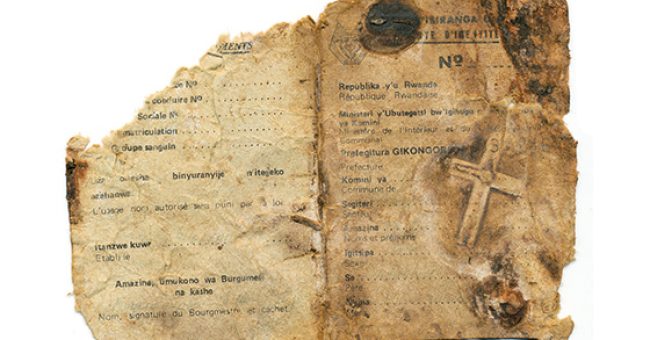 MENTS
ce No
conduire No
Sociale No
matriculation
Groupe sanguin
binyuranyije n'itejeko
L'usage non autorisé sera puni par la loi
Itanzwe kuwa
Etablie le
Amazina, umukono wa Burgumes
na kashe
Nom, signature du Bourgmestre et cachet
IBIRANGA
TE D'IDENTITE
No
Republika y'u Rwanda
République Rwandaise
Ministeri y'Ubutegetsi bw'igihugu
ya Komini
Ministère de l'Intérieur et du
Communal
Prefegitura GIKONGORO
Préfecture
Komini ya
Commune de
Segiteri
Secteur
Amazina
Noms et prénoms
Igitsina
Sexe
Se
Père
Nyina